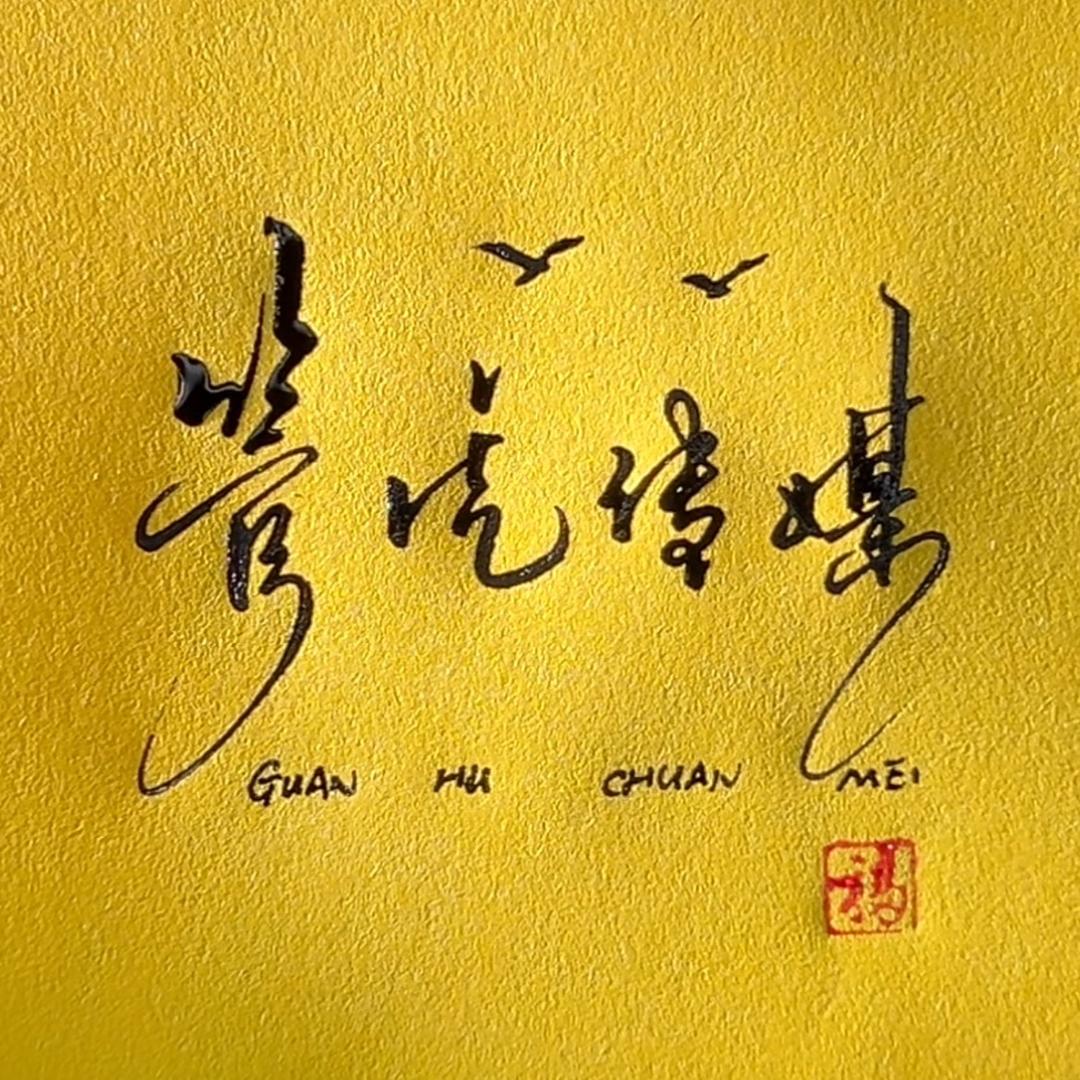 管虎传媒
GUAN HU CHUAN MEI
福